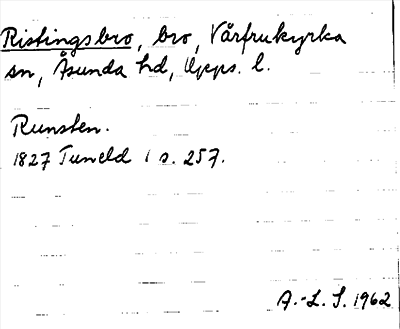 Ristingsbro, bro, Vårfrukyrka
sn, Åsunda hd, Upps. l.
Runsten.
1827 Tuneld 1 s. 257.
A.-L. S. 1962